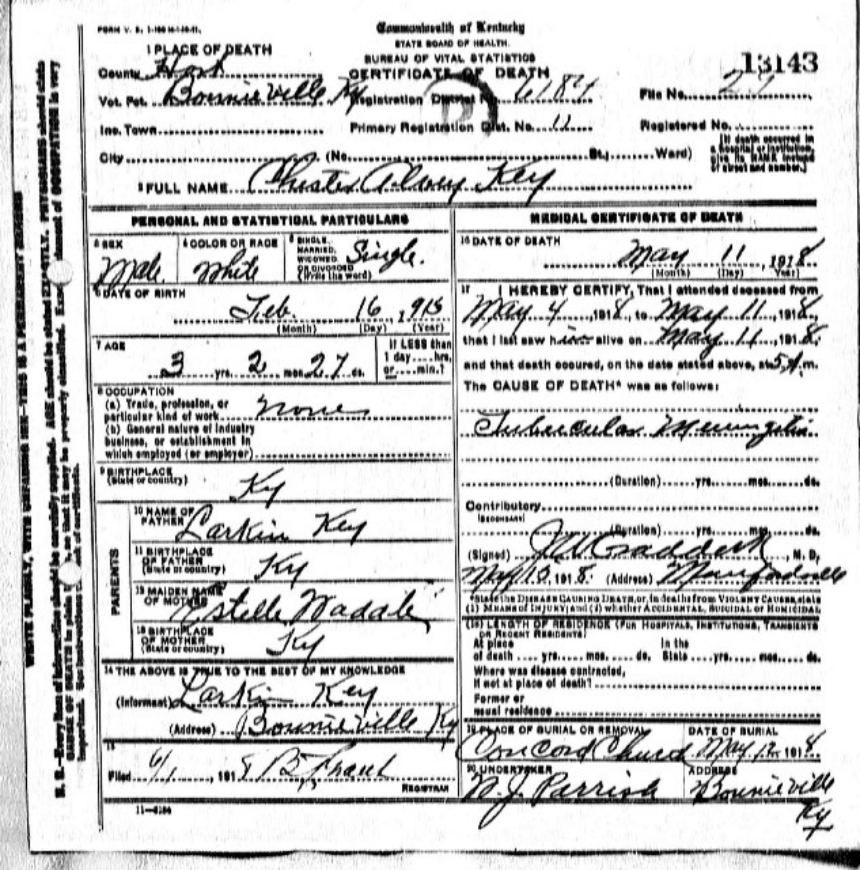 FORM V. S.
Commonwealth of Kentucky
STATE BOARD OF HEALTH.
BUREAU OF VITAL STATISTICS
CERTIFICATE OF DEATH
13143
1 PLACE OF DEATH
County Hart
Vot. Pct. Bonnieville Ky Registration District No. 6184 File No.
Inc. Town Primary Registration Dist. No. 11 Registered No.
City (No. St.; Ward)
[If death occurred in a hospital or institution, give its NAME instead of street and number.]
2 FULL NAME Chester Alvey Key
PERSONAL AND STATISTICAL PARTICULARS
3 SEX Male
4 COLOR OR RACE White
5 SINGLE, MARRIED, WIDOWED OR DIVORCED (Write the word) Single.
6 DATE OF BIRTH
Feb. 16, 1915
(Month) (Day) (Year)
7 AGE
3 yrs. 2 mos. 27 ds.
If LESS than 1 day....hrs, or....min.?
8 OCCUPATION
(a) Trade, profession, or particular kind of work none
(b) General nature of industry business, or establishment in which employed (or employer)
9 BIRTHPLACE (State or country) Ky
PARENTS
10 NAME OF FATHER Larkin Key
11 BIRTHPLACE OF FATHER (State or country) Ky
12 MAIDEN NAME OF MOTHER Estelle
13 BIRTHPLACE OF MOTHER (State or country) Ky
14 THE ABOVE IS TRUE TO THE BEST OF MY KNOWLEDGE
(Informant) Larkin Key
(Address) Bonnieville Ky
15
Filed 6/1, 1918
REGISTRAR
11-3184
MEDICAL CERTIFICATE OF DEATH
16 DATE OF DEATH
May 11, 1918
(Month) (Day) (Year)
17 I HEREBY CERTIFY, That I attended deceased from
May 4, 1918, to May 11, 1918,
that I last saw him alive on May 11, 1918,
and that death occured, on the date stated above, at 5 A.m.
The CAUSE OF DEATH* was as follows:
Tubercular Meningitis
(Duration) yrs. mos. ds.
Contributory
(SECONDARY)
(Duration) yrs. mos. ds.
(Signed) Craddock, M. D.
May 1918. (Address) Munfordville
*State the DISEASE CAUSING DEATH, or, in deaths from VIOLENT CAUSES, state
(1) MEANS OF INJURY; and (2) whether ACCIDENTAL, SUICIDAL or HOMICIDAL
(18) LENGTH OF RESIDENCE (FOR HOSPITALS, INSTITUTIONS, TRANSIENTS OR RECENT RESIDENTS)
At place of death yrs. mos. ds. In the State yrs. mos. ds.
Where was disease contracted, if not at place of death?
Former or usual residence
19 PLACE OF BURIAL OR REMOVAL Concord Church
DATE OF BURIAL May 12 1918
20 UNDERTAKER Parrish
ADDRESS Bonnieville Ky